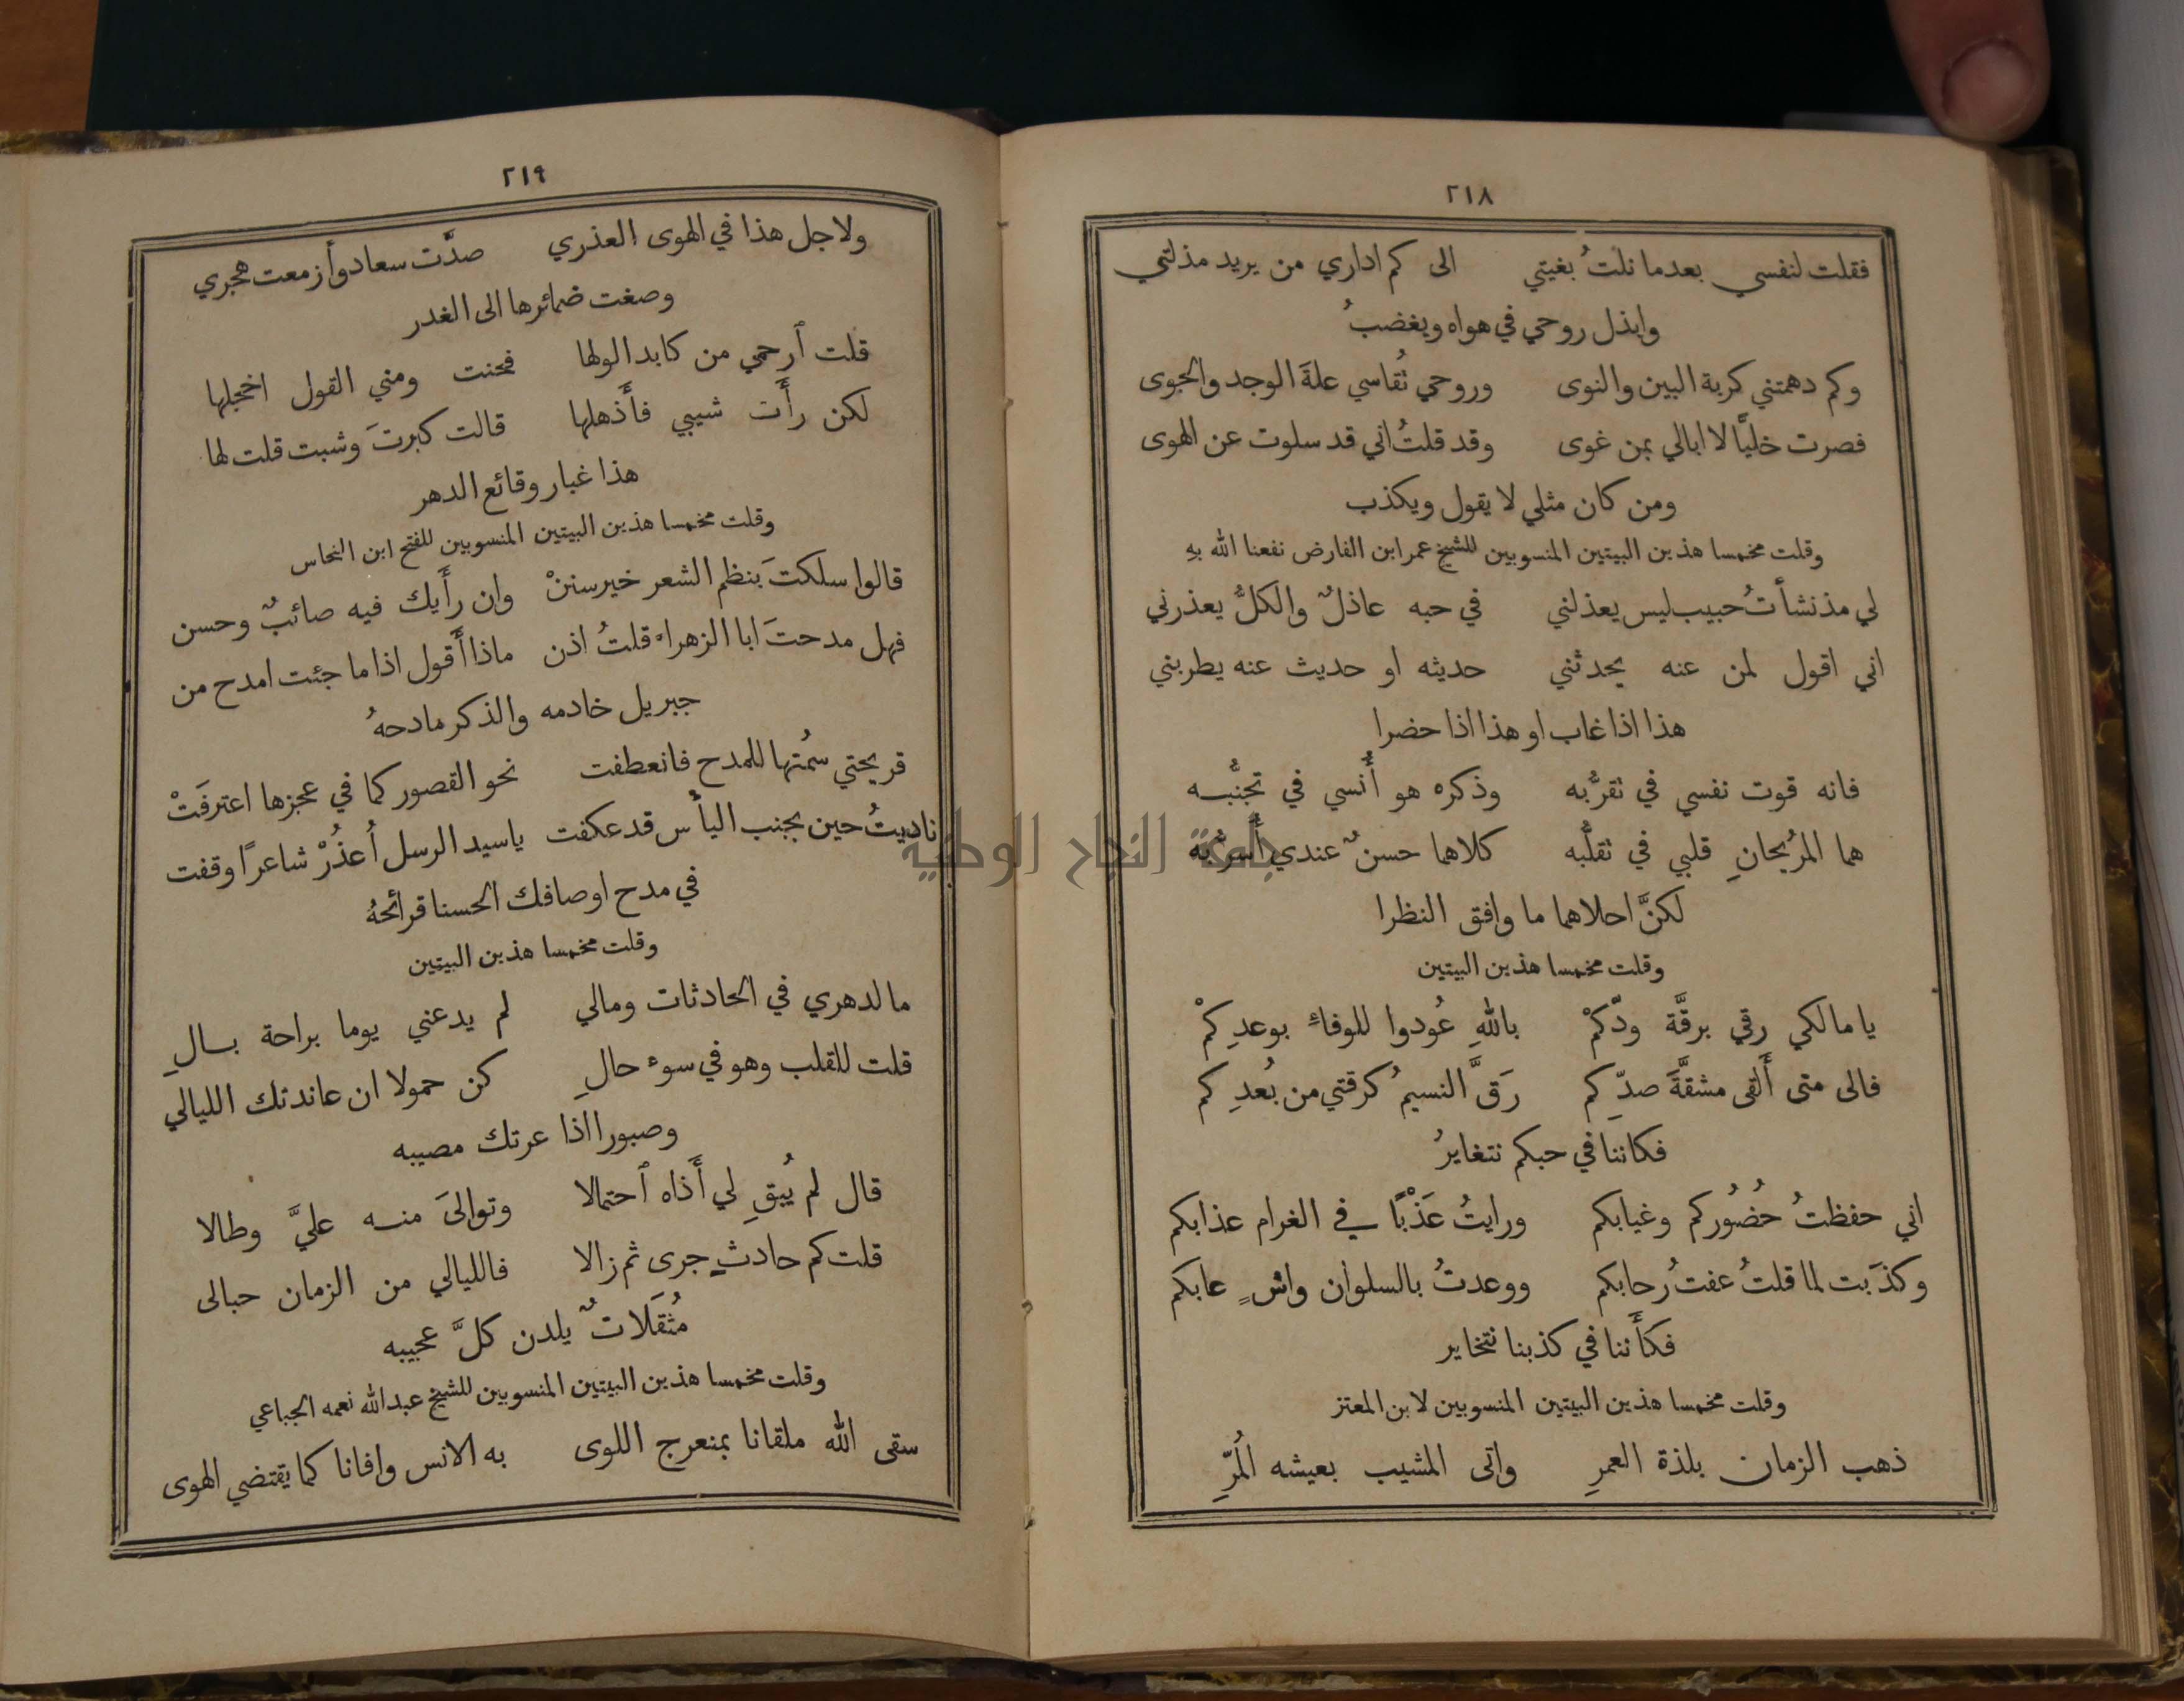 ٢١٨
فقلت لنفسي بعدما نلتُ بغيتي الى كم اداري من يريد مذلتي
وابذل روحي في هواه ويغضبُ
وكم دهمتني كربة البين والنوى وروحي تُقاسي علةَ الوجد والجوى
فصرت خليًّا لا ابالي بمن غوى وقد قلتُ اني قد سلوت عن الهوى
ومن كان مثلي لا يقول ويكذب
وقلت مخمسا هذين البيتين المنسوبين للشيخ عمر ابن الفارض نفعنا الله بهِ
لي مذ نشأتُ حبيب ليس يعذلني في حبه عاذلٌ والكلُّ يعذرني
اني اقول لمن عنه يحدثني حديثه او حديث عنه يطربني
هذا اذا غاب او هذا اذا حضرا
فانه قوت نفسي في تقرُّبه وذكره هو أُنسي في تجنُّبه
هما المرُيحانِ قلبي في تقلُّبه كلاهما حسنٌ عندي أُسرُّ به
لكنَّ احلاهما ما وافق النظرا
وقلت مخمسا هذين البيتين
يا مالكي رقي برقَّة ودّكمْ باللهِ عُودوا للوفاءِ بوعدِكمْ
فالى متى أَلقى مشقَّةَ صدِّكم رَقَّ النسيمُ كرقتي من بُعدِكم
فكاننا في حبكم نتغايرُ
اني حفظتُ حُضُوركم وغيابكم ورايتُ عَذْبًا في الغرام عذابكم
وكذَبت لما قلتُ عفتُ رحابكم ووعدتُ بالسلوان واشٍ عابكم
فكأَننا في كذبنا نتخاير
وقلت مخمسا هذين البيتين المنسوبين لابن المعتز
ذهب الزمان بلذة العمرِ واتى المشيب بعيشه المُرِّ
٢١٩
ولاجل هذا في الهوى العذري صدَّت سعاد وأزمعت هجري
وصغت ضمائرها الى الغدر
قلت ٱرحمي من كابد الولها فحنت ومني القول اخجلها
لكن رأَت شيبي فأَذهلها قالت كبرتَ وشبت قلت لها
هذا غبار وقائع الدهر
وقلت مخمسا هذين البيتين المنسوبين للفتح ابن النحاس
قالوا سلكتَ بنظم الشعر خير سننْ وان رأَيك فيه صائبٌ وحسن
فهل مدحتَ ابا الزهراءِ قلتُ اذن ماذا أَقول اذا ما جئت امدح من
جبريل خادمه والذكر مادحهُ
قريحتي سمُتها للمدح فانعطفت نحو القصور كما في عجزها اعترفَتْ
ناديتُ حين بجنب اليأْس قد عكفت ياسيد الرسل أُعذُرْ شاعرًا وقفت
في مدح اوصافك الحسنا قرائحهُ
وقلت مخمسا هذين البيتين
ما لدهري في الحادثات ومالي لم يدعني يوما براحة بالِ
قلت للقلب وهو في سوء حالِ كن حمولا ان عاندتك الليالي
وصبورا اذا عرتك مصيبه
قال لم يُبقِ لي أَذاه ٱحتمالا وتوالىَ منه عليَّ وطالا
قلت كم حادثٍ جرى ثم زالا فالليالي من الزمان حبالى
مُثقَلاتٌ يلدن كلَّ عجيبه
وقلت مخمسا هذين البيتين المنسوبين للشيخ عبدالله نعمه الجباعي
سقى الله ملقانا بمنعرج اللوى به الانس وافانا كما يقتضي الهوى
جامعة النجاح الوطنية